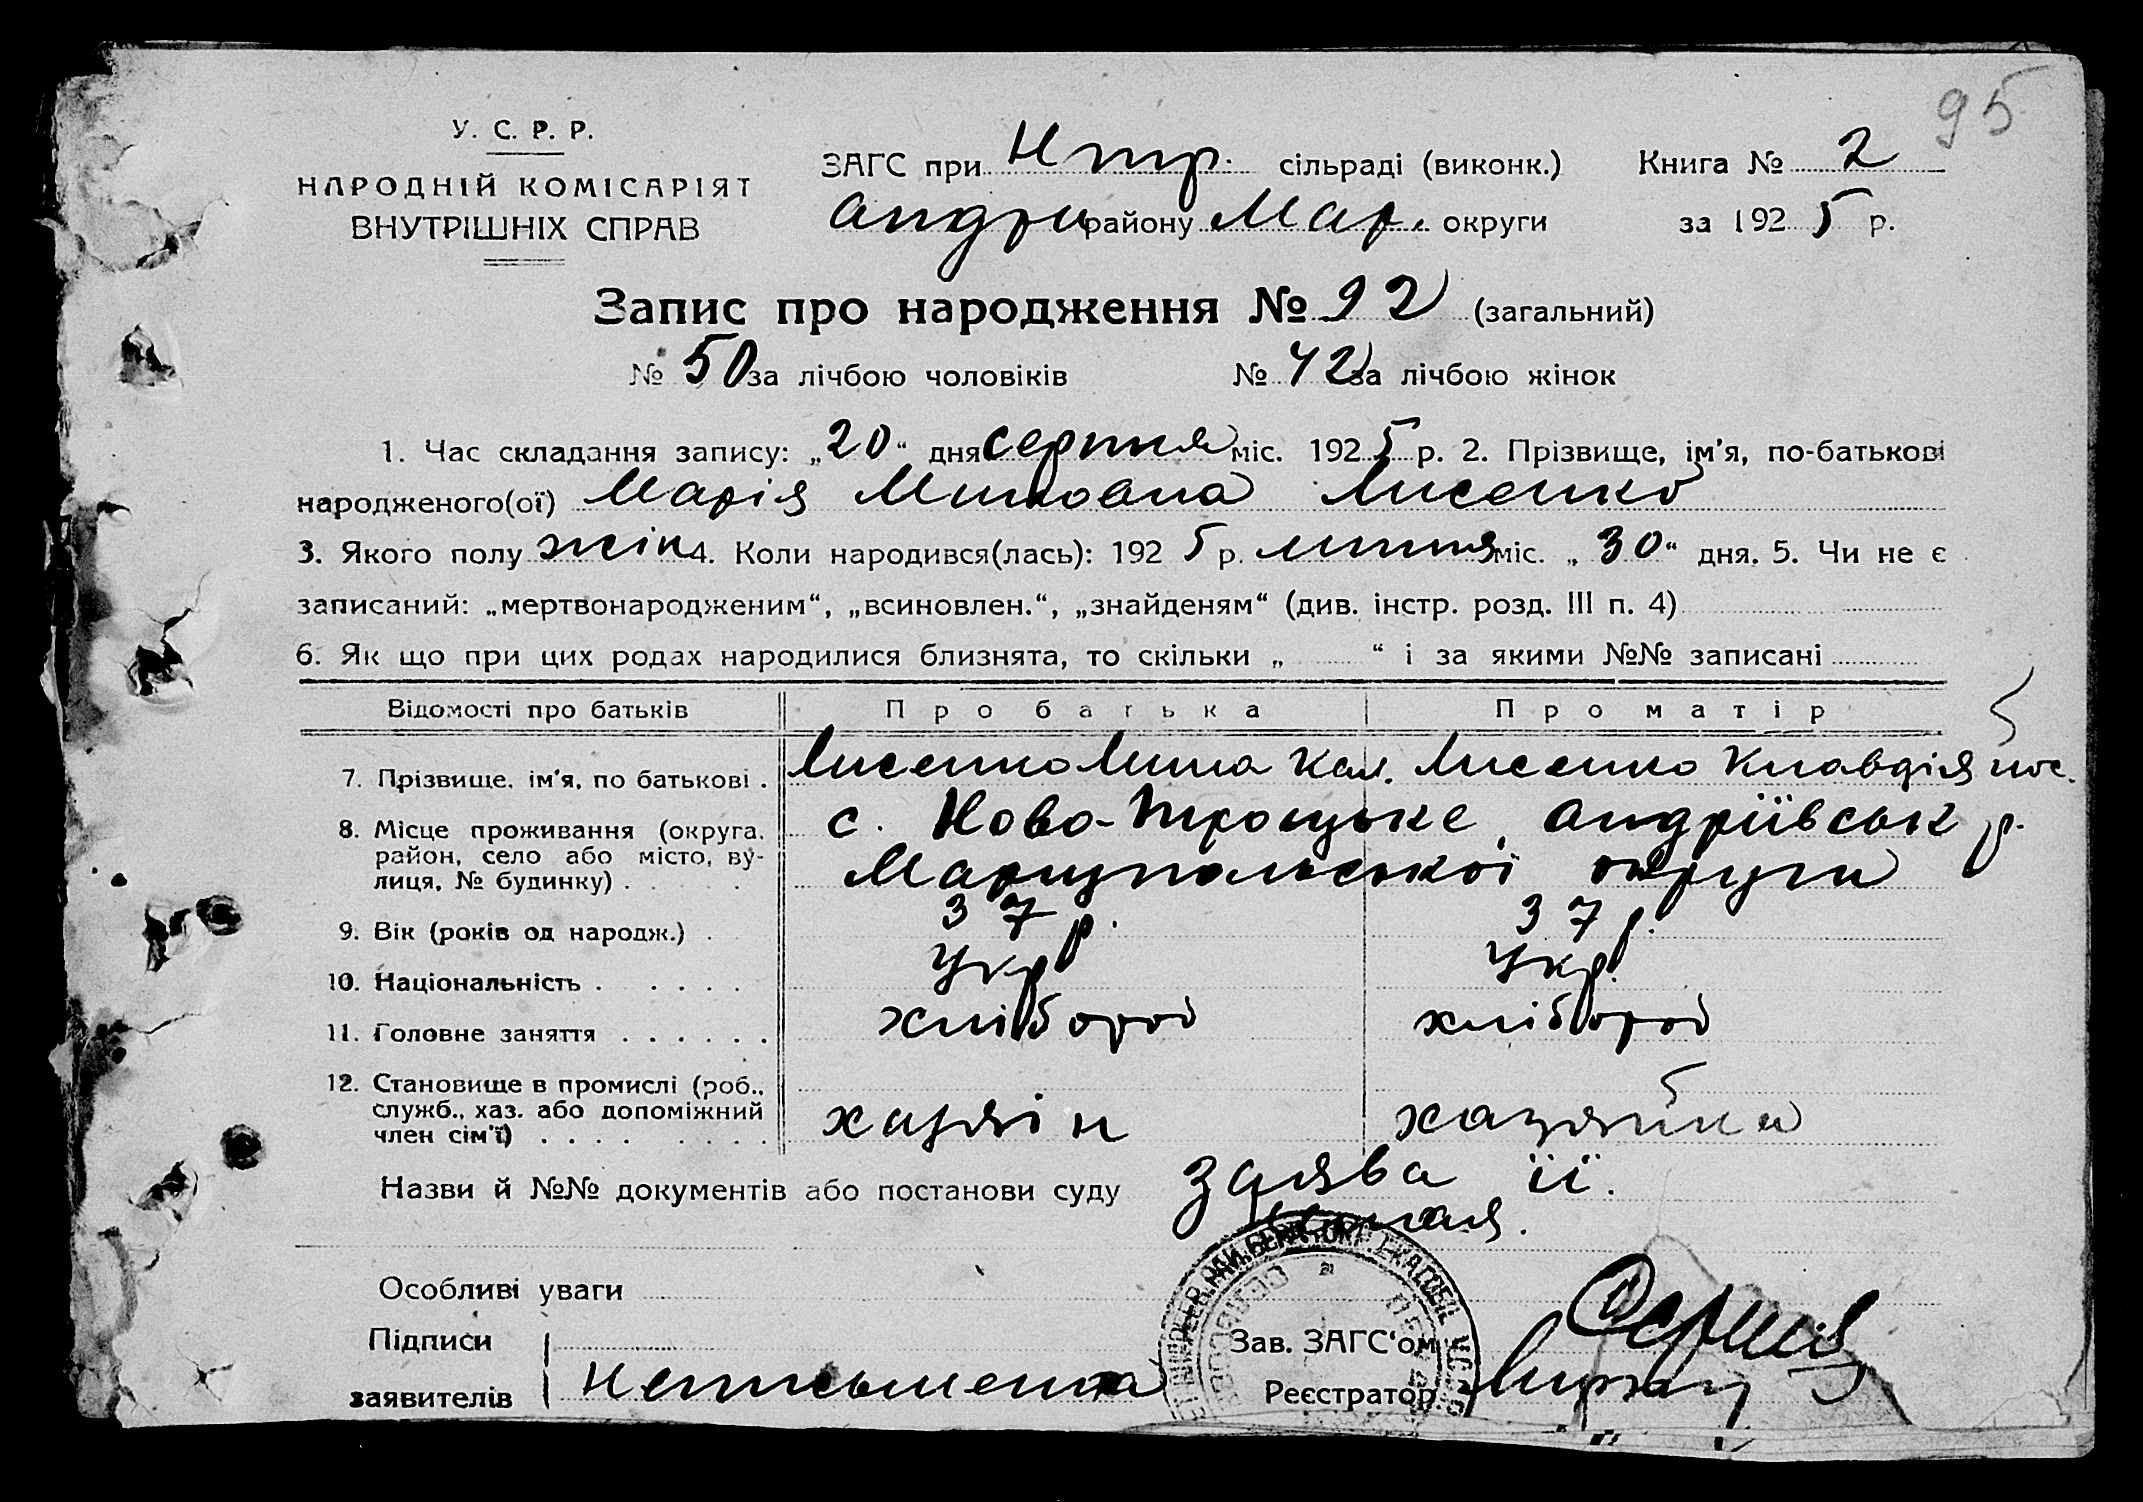 95
У. С. Р. Р.
НАРОДНІЙ КОМІСАРІЯТ
ВНУТРІШНІХ СПРАВ
ЗАГС при Нтр. сільраді (виконк.) Книга № 2
Андри району Мар. округи за 1925 р.
Запис про народження № 92 (загальний)
№ 50 за лічбою чоловіків № 42 за лічбою жінок
1. Час складання запису: „20“ дня серпня міс. 1925 р. 2. Прізвище, ім'я, по-батькові
народженого(ої) Марія Лисенко
3. Якого полу жін 4. Коли народився(лась): 1925 р. липня міс. „30“ дня. 5. Чи не є
записаний: „мертвонародженим“, „всиновлен.“, „знайденям“ (див. інстр. розд. III п. 4)
6. Як що при цих родах народилися близнята, то скільки „ “ і за якими №№ записані
Відомості про батьків Про батька Про матір
7. Прізвище, ім'я, по батькові . Лисенко Кал. Лисенко Клавдія
8. Місце проживання (округа, с. Ново-Троцьке, Андріївськ р.
район, село або місто, ву-
лиця, № будинку) . Маріупольської округи
9. Вік (років од народж.) . 37 р. 37 р.
10. Національність . Укр Укр.
11. Головне заняття . хлібороб хлібороб
12. Становище в промислі (роб.,
служб., хаз. або допоміжний
член сім'ї) . хазяїн хазяйка
Назви й №№ документів або постанови суду Заява її.
Особливі уваги
Підписи Зав. ЗАГС'ом
заявителів Неписьменна Реєстратор